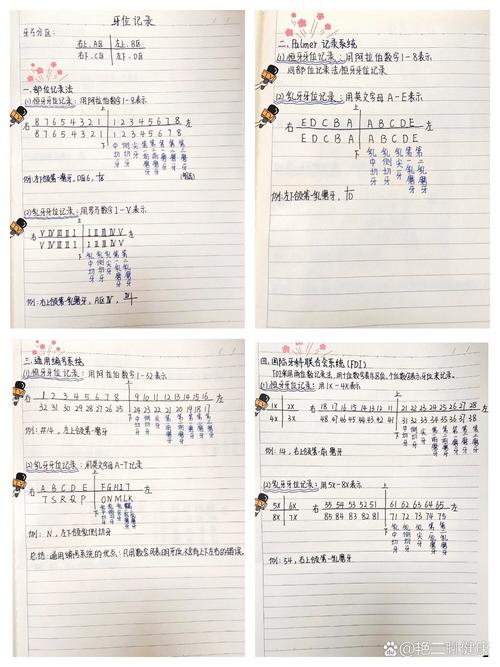 牙位记录
牙弓分区:
右上、A区 左上、B区
右下、C区 左下、D区
一、部位记录法
(1)恒牙牙位记录:用阿拉伯数字1-8表示
上
右 8 7 6 5 4 3 2 1 1 2 3 4 5 6 7 8 左
8 7 6 5 4 3 2 1 1 2 3 4 5 6 7 8
下
中切牙 侧切牙 尖牙 第一前磨牙 第二前磨牙 第一磨牙 第二磨牙 第三磨牙
例:左下颌第一磨牙,D区6,
(2)乳牙牙位记录:用罗马数字I-V表示
上
右 V IV III II I I II III IV V 左
V IV III II I I II III IV V
下
乳中切牙 乳侧切牙 乳尖牙 第一乳磨牙 第二乳磨牙
例:右上颌第一乳磨牙,A区IV,
二、Palmer 记录系统
(1)恒牙牙位记录:用阿拉伯数字1-8表示
同部位记录法恒牙牙位记录
(2)乳牙牙位记录:用英文字母A-E表示
上
右 E D C B A A B C D E 左
E D C B A A B C D E
下
乳中切牙 乳侧切牙 乳尖牙 第一乳磨牙 第二乳磨牙
例:左下颌第一乳磨牙,
三、通用编号系统
(1)恒牙牙位记录:用阿拉伯数字1-32表示
上
右 1 2 3 4 5 6 7 8 9 10 11 12 13 14 15 16 左
32 31 30 29 28 27 26 25 24 23 22 21 20 19 18 17
下
例:#14,左上颌第一磨牙
(2)乳牙牙位记录:用英文字母A-T记录
上
右 A B C D E F G H I J 左
T S R Q P O N M L K
下
例:N,左下颌乳侧切牙
总结:通用编号系统的优点:只用数字可表示牙位,不会有上下左右的错误。
四、国际牙科联合会系统(FDI)
FDI采用两位数记录法,用十位数字表示区位,个位数字表示牙位来记录。
(1)恒牙牙位记录:用1X-4X表示
1X 2X
4X 3X
上
右 18 17 16 15 14 13 12 11 21 22 23 24 25 26 27 28 左
48 47 46 45 44 43 42 41 31 32 33 34 35 36 37 38
下
例:14,右上颌第一前磨牙
(2)乳牙牙位记录:用5X-8X表示
5X 6X
8X 7X
上
右 55 54 53 52 51 61 62 63 64 65 左
85 84 83 82 81 71 72 73 74 75
下
例:54,右上颌第一乳磨牙
@艳二聊健康